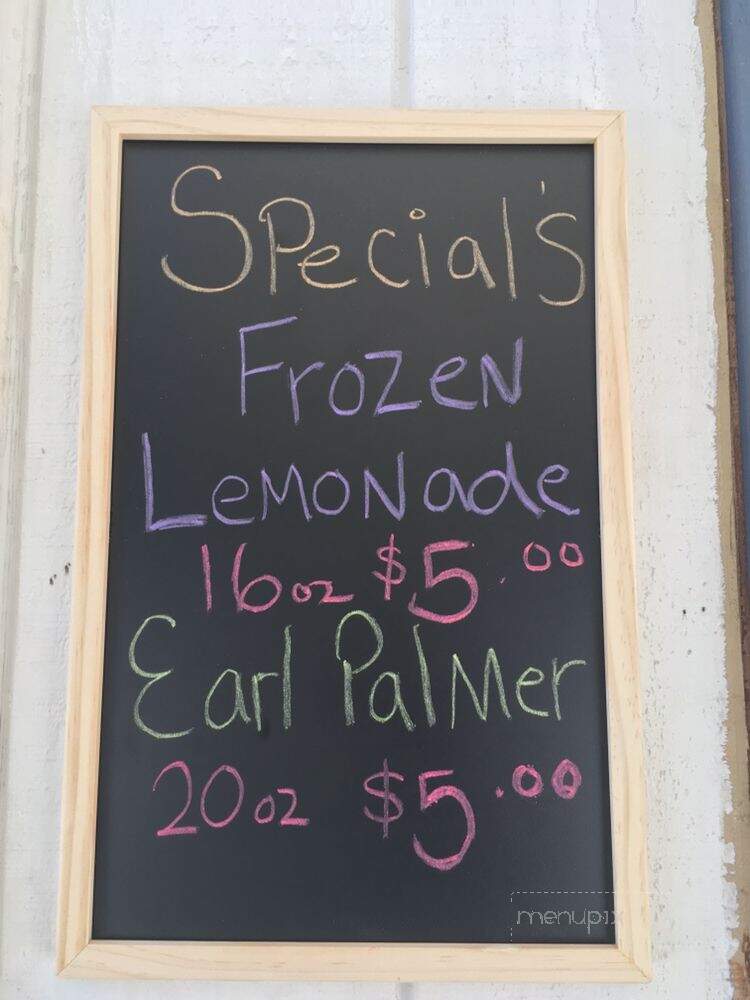 Special's
Frozen
Lemonade
16oz $5.00
Earl Palmer
20oz $5.00
menupix